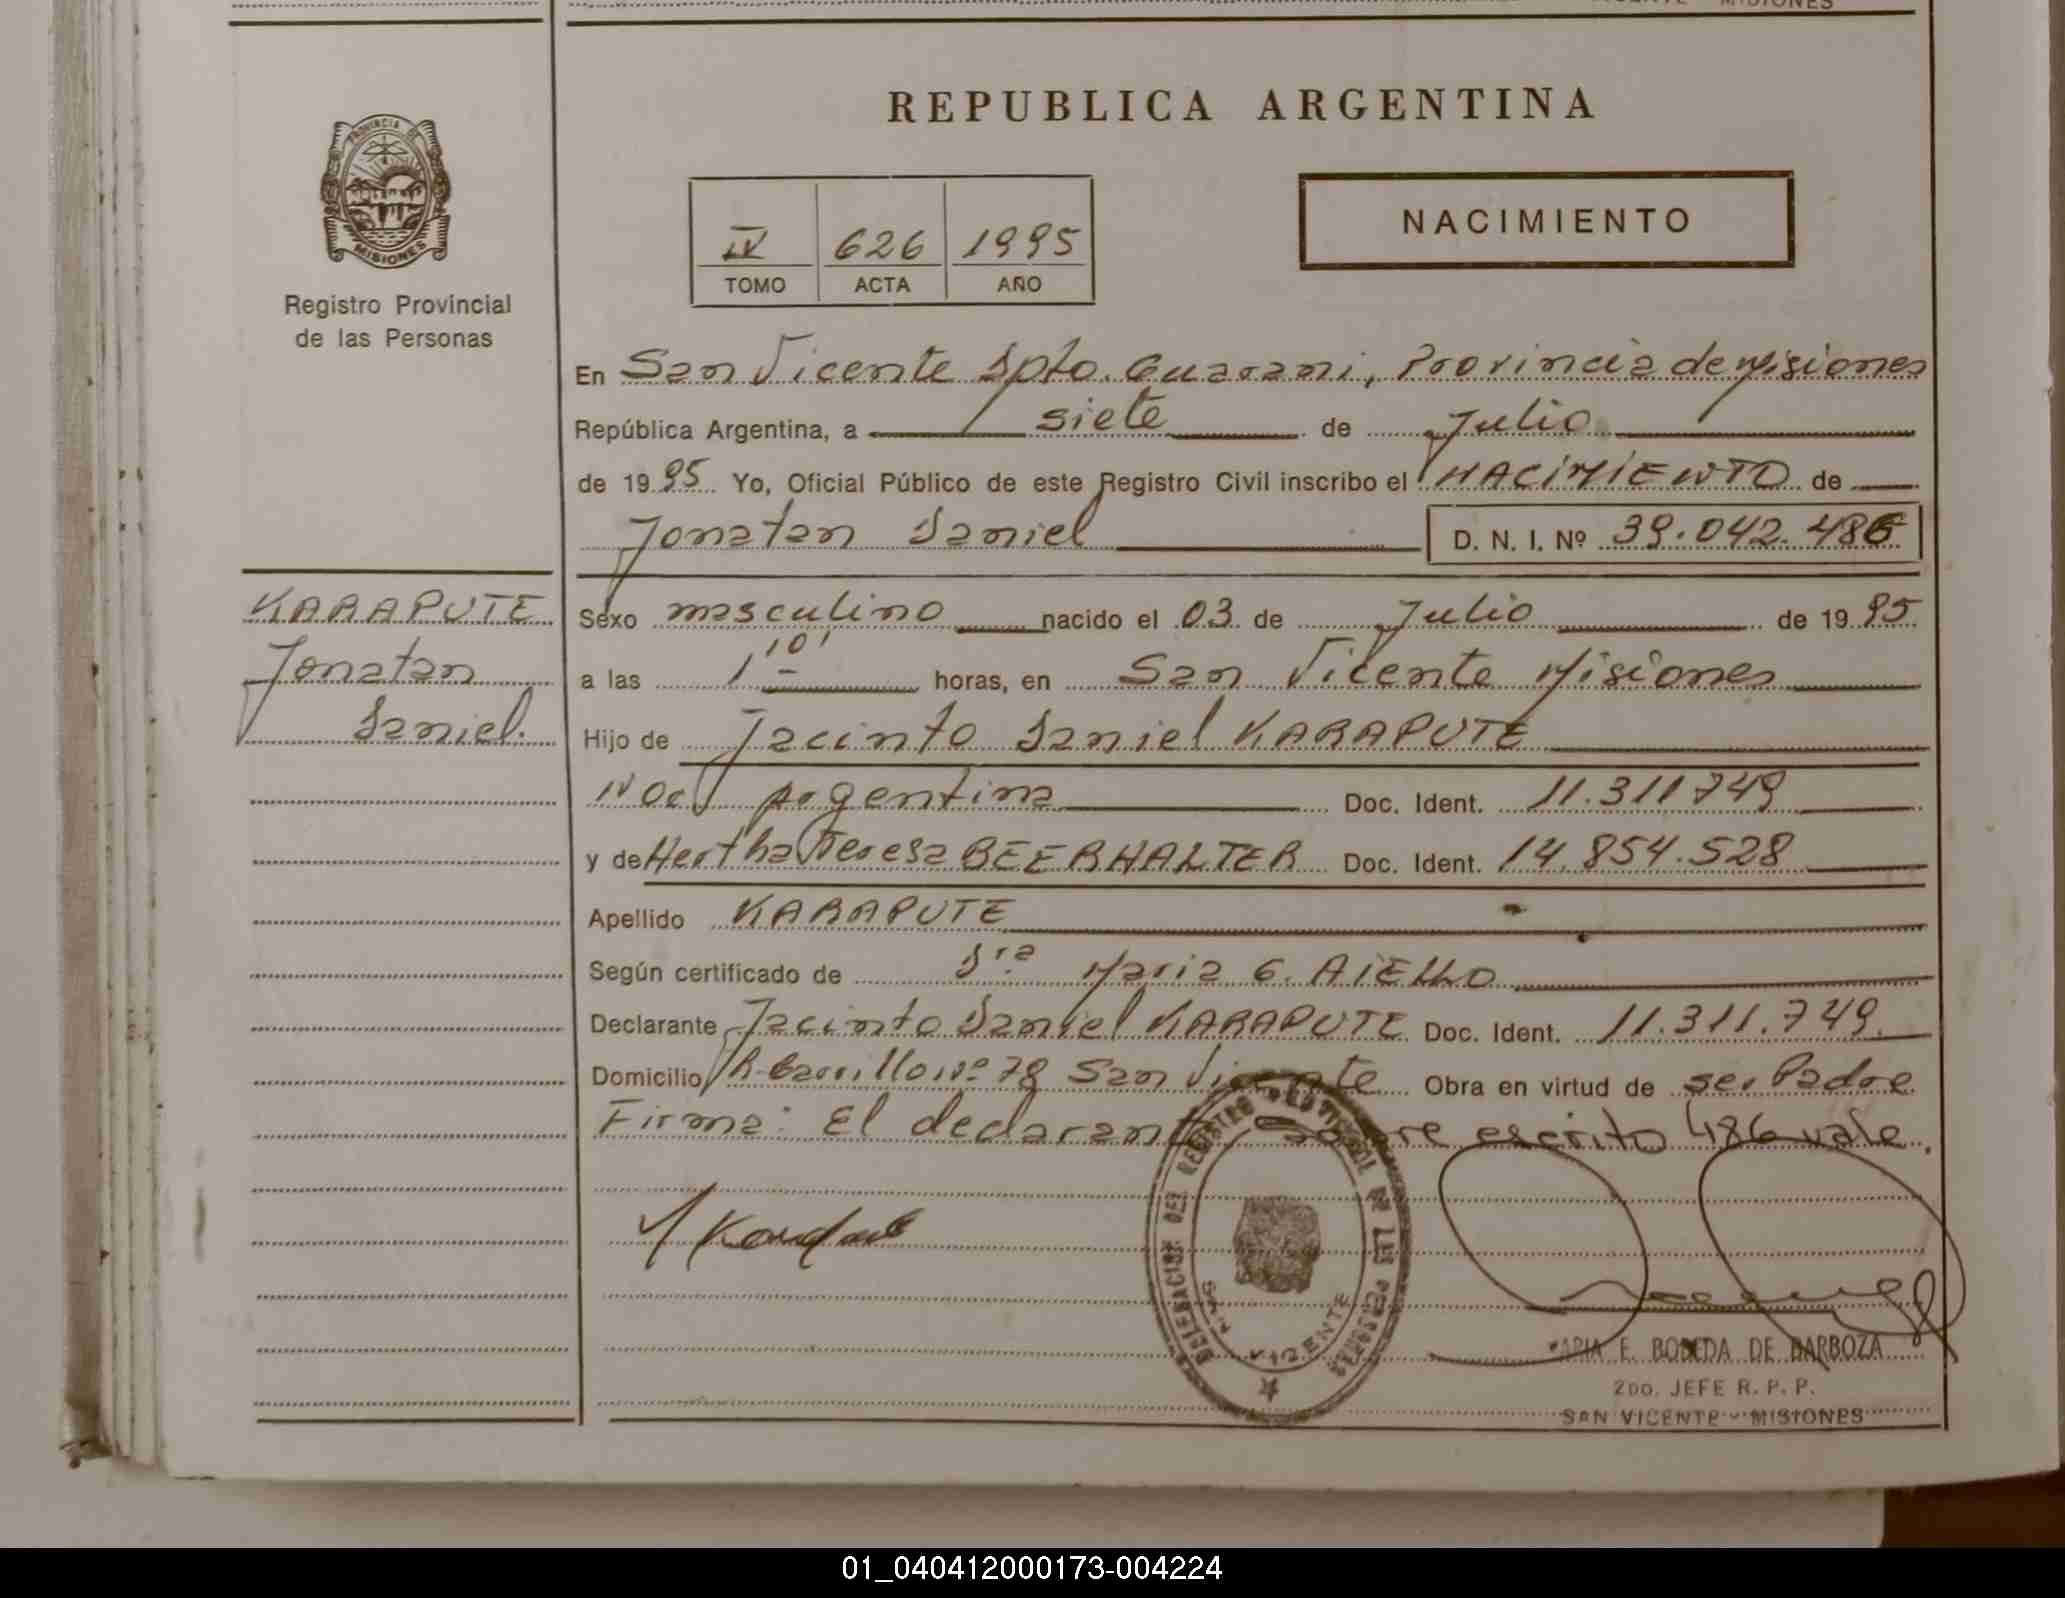 MISIONES
REPUBLICA ARGENTINA
PROVINCIA DE
MISIONES
Registro Provincial
de las Personas
IV 626 1995
TOMO ACTA AÑO
NACIMIENTO
En San Vicente Dpto. Guarani, Provincia de Misiones
República Argentina, a siete de Julio
de 1995 Yo, Oficial Público de este Registro Civil inscribo el NACIMIENTO de
Jonatan Daniel D. N. I. Nº 39.042.486
KARAPUTE
Jonatan
Daniel.
Sexo masculino nacido el 03 de Julio de 1995
a las 1 10' horas, en San Vicente Misiones
Hijo de Jacinto Daniel KARAPUTE
Nac Argentina Doc. Ident. 11.311749
y de Hertha Teresa BEERHALTER Doc. Ident. 14.854.528
Apellido KARAPUTE
Según certificado de Dra Maria G. AIELLO
Declarante Jacinto Daniel KARAPUTE Doc. Ident. 11.311.749.
Domicilio R. Carrillo Nº 78 San Vicente Obra en virtud de ser Padre
Firma: El declarante, sobre escrito 486 vale.
DELEGACION DEL REGISTRO PROVINCIAL DE LAS PERSONAS
SAN VICENTE
MARIA E. BOBEDA DE BARBOZA
2DO. JEFE R. P. P.
SAN VICENTE - MISIONES
01_040412000173-004224